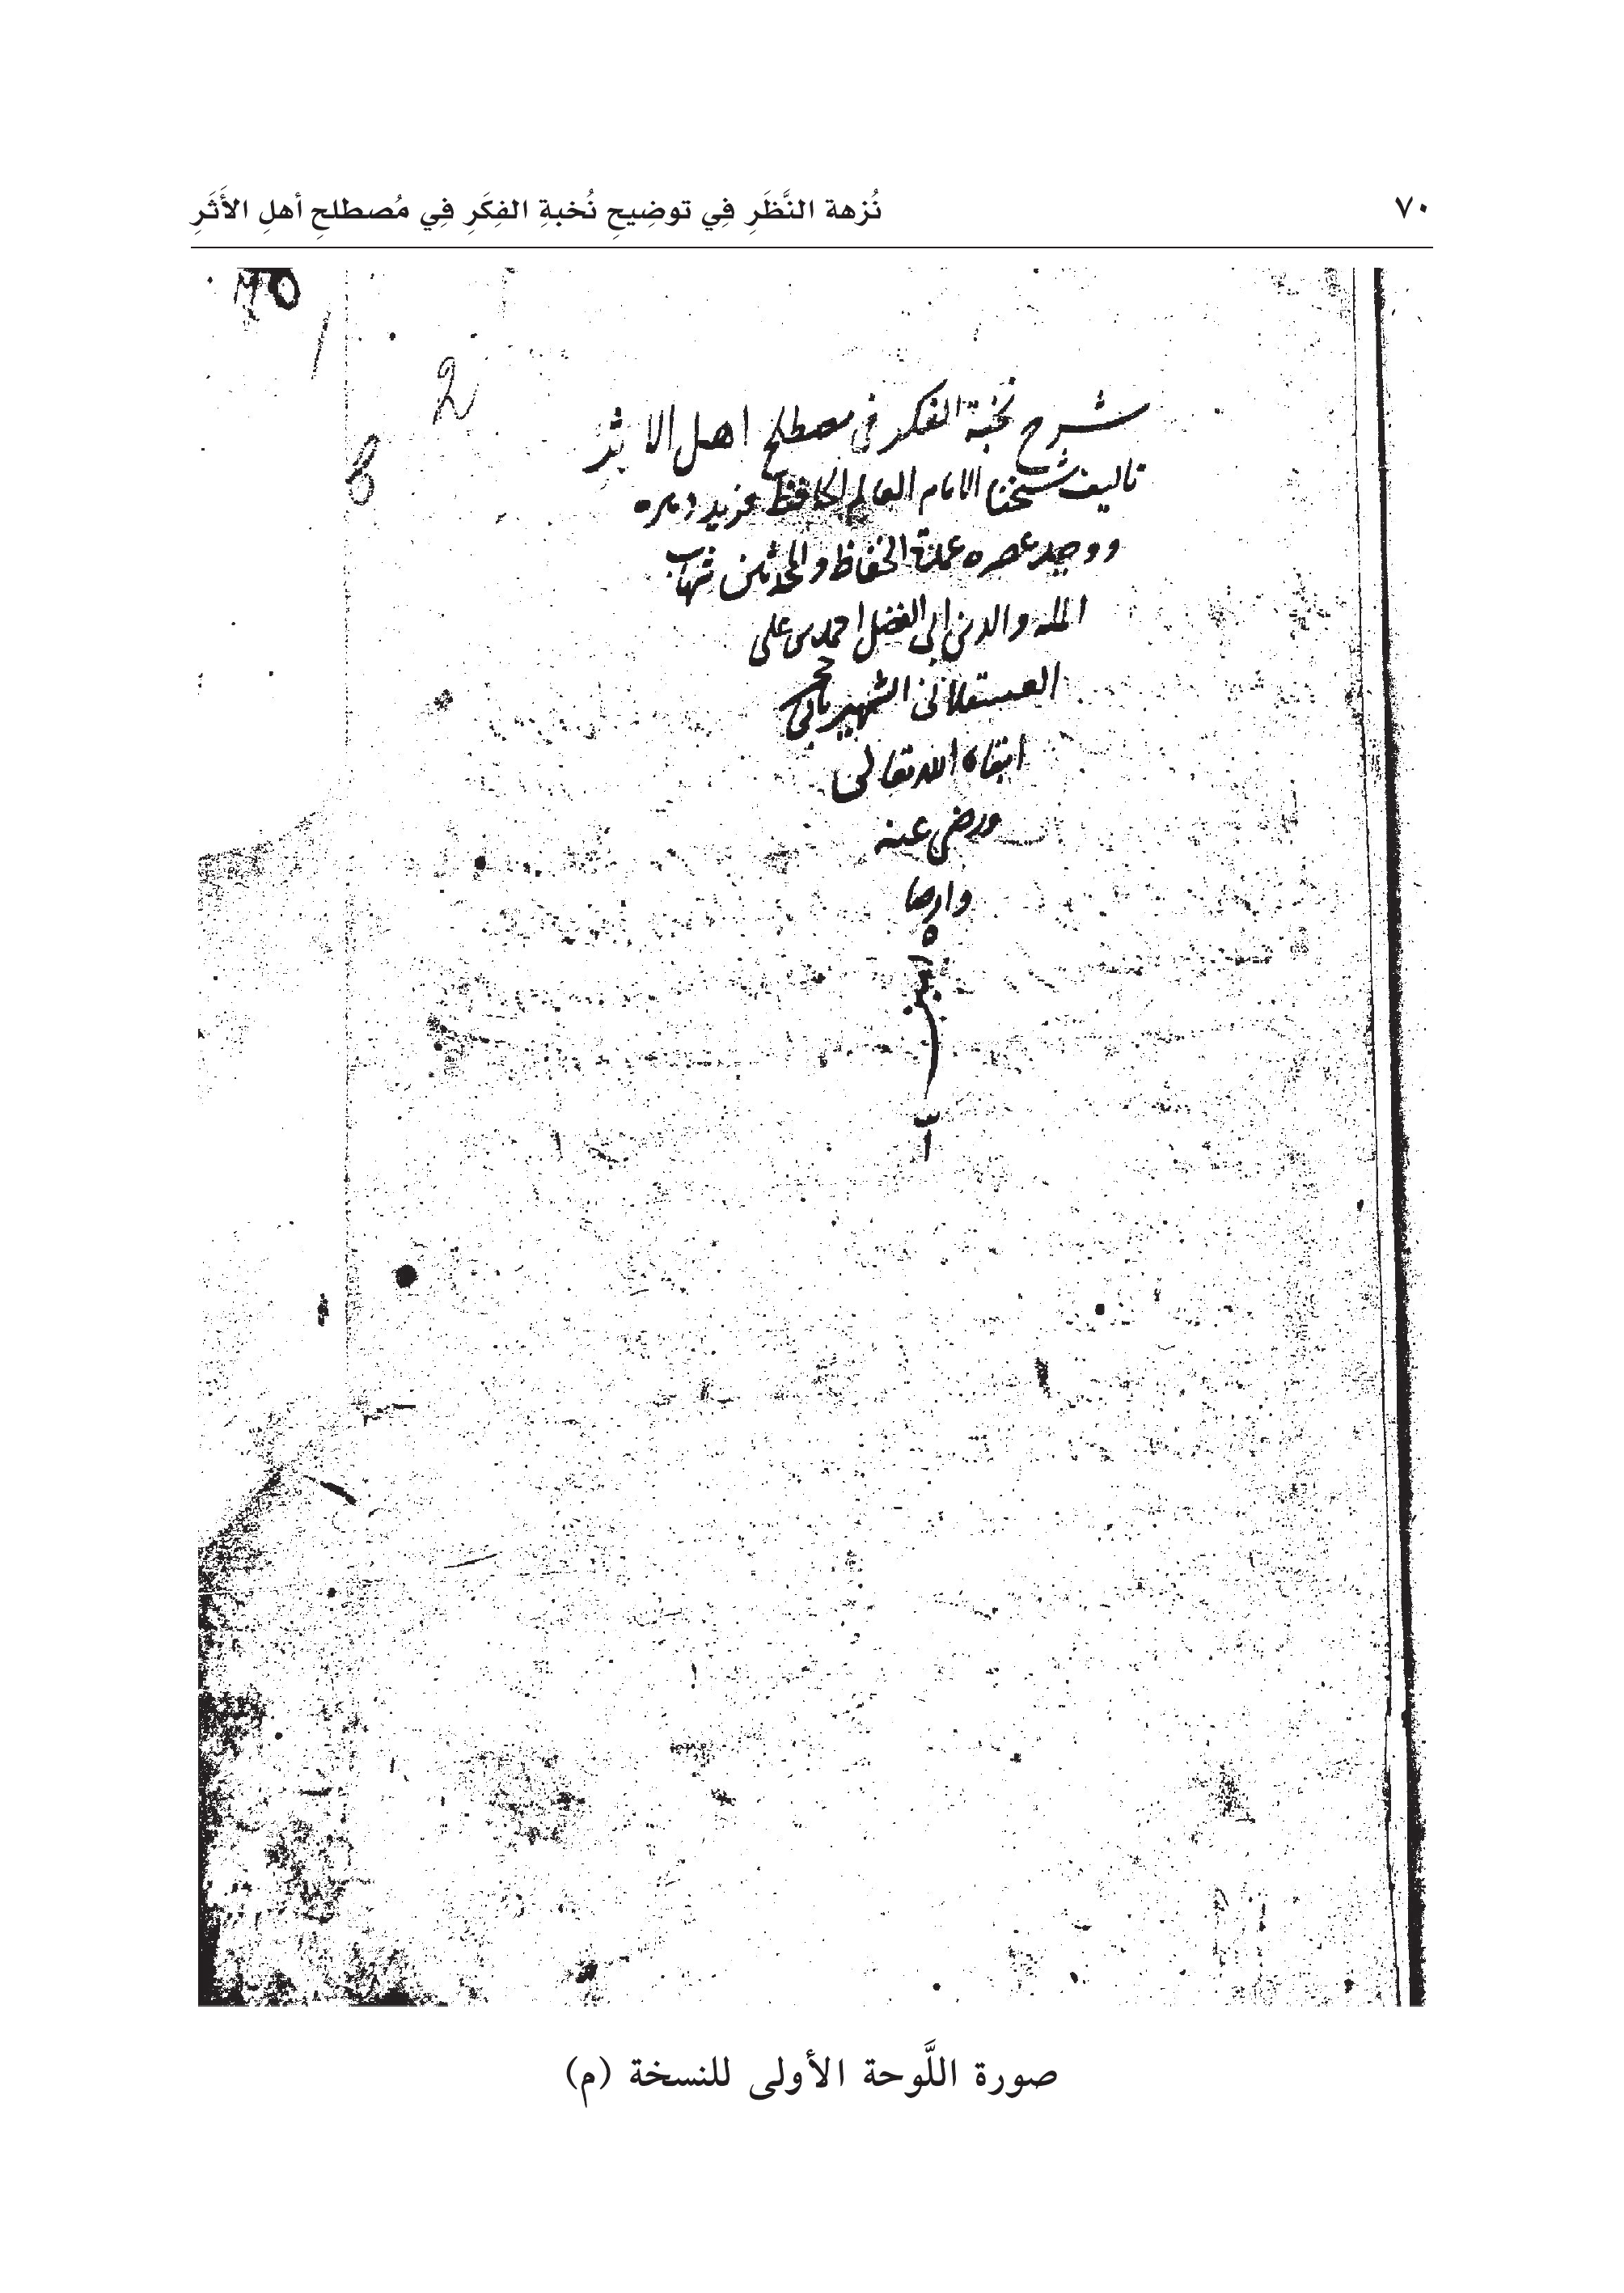 ٧٠ نُزهة النَّظَرِ فِي توضِيحِ نُخبةِ الفِكَرِ فِي مُصطلحِ أهلِ الأَثَرِ
شرح نخبة الفكر في مصطلح اهل الاثر
تاليف شيخنا الامام العالم الحافظ فريد دهره
ووحيد عصره عمدة الحفاظ والمحدثين شهاب
المله والدين ابي الفضل احمد بن علي
العسقلاني الشهير بابن حجر
ابقاه الله تعالى
ورضي عنه
وارضاه
امين
2
صورة اللَّوحة الأولى للنسخة (م)